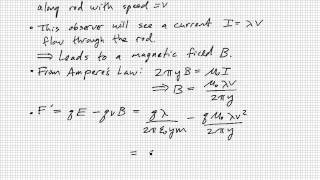 along rod with speed =v
• This observer will see a current I = λv
flow through the rod.
⇒ Leads to a magnetic field B.
• From Ampere's Law: 2πyB = μ₀I
⇒ B = μ₀λv / 2πy
• F' = qE - qvB = qλ / 2πε₀ym - qμ₀λv² / 2πy
=